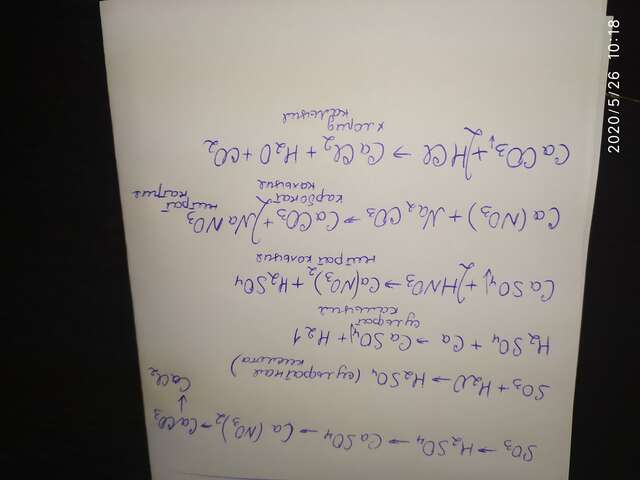 SO3 → H2SO4 → CaSO4 → Ca(NO3)2 → CaCO3
↓
CaCl2
SO3 + H2O → H2SO4 (сульфатная
кислота)
H2SO4 + Ca → CaSO4↓ + H2↑
сульфат
кальция
CaSO4↓ + 2HNO3 → Ca(NO3)2 + H2SO4
нитрат кальция
Ca(NO3) + Na2CO3 → CaCO3 + 2NaNO3
карбонат нитрат
кальция натрия
CaCO3↓ + 2HCl → CaCl2 + H2O + CO2
хлорид
кальция
2020/5/26 10:18